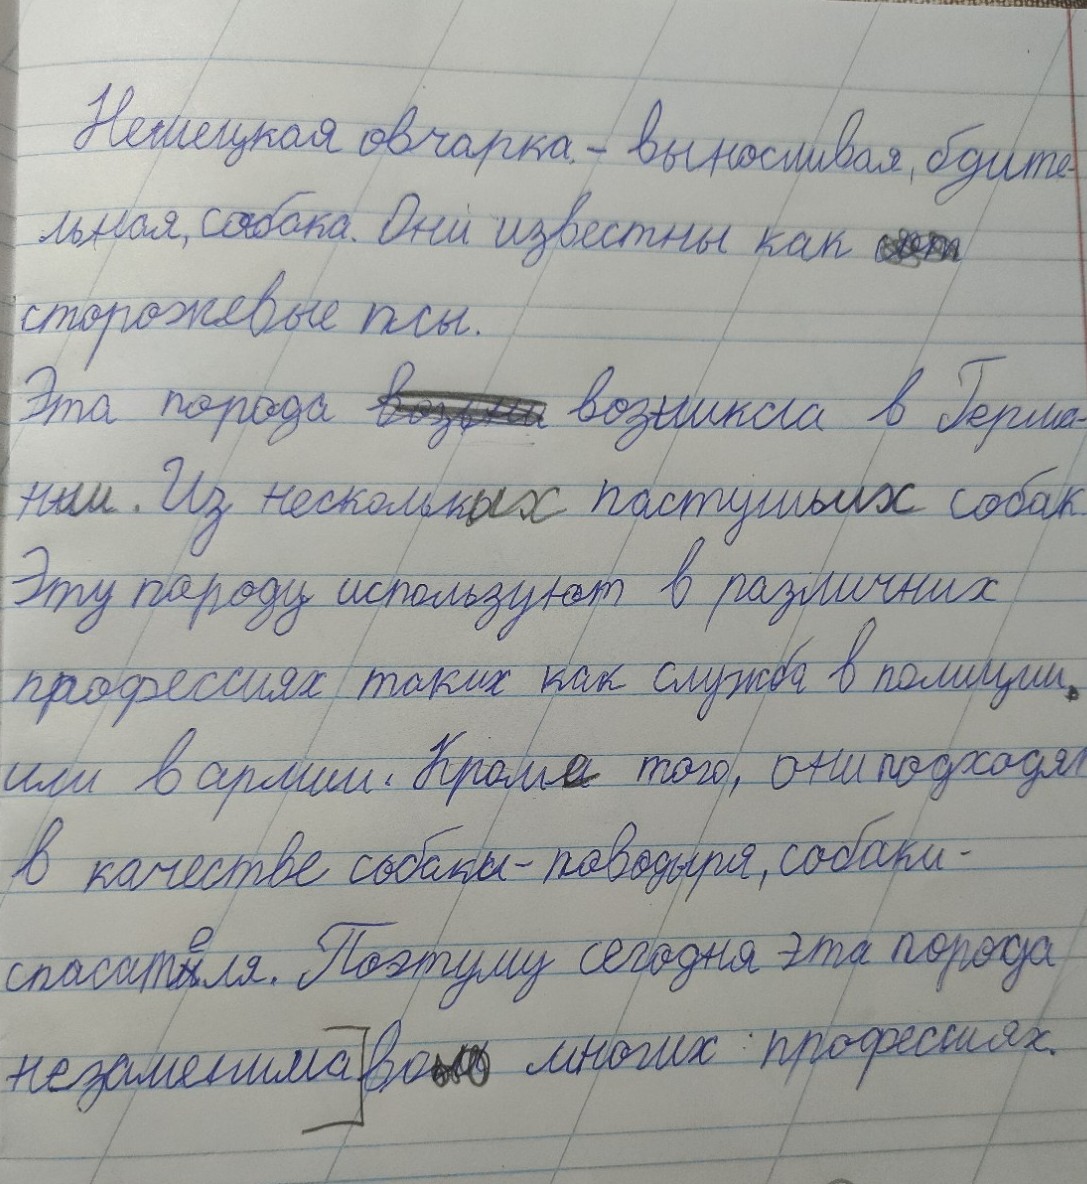 Немецкая овчарка. - выносливая, бдите-
льная, собака. Они известны как
сторожевые псы.
Эта порода возникла в Герма-
нии. Из нескольких пастушьих собак
Эту породу используют в различних
профессиях таких как служба в полиции.
или в армии. Кроме того, они подходят
в качестве собаки-поводыря, собаки-
спасателя. Поэтуму сегодня эта порода
незаменима во многих профессиях.